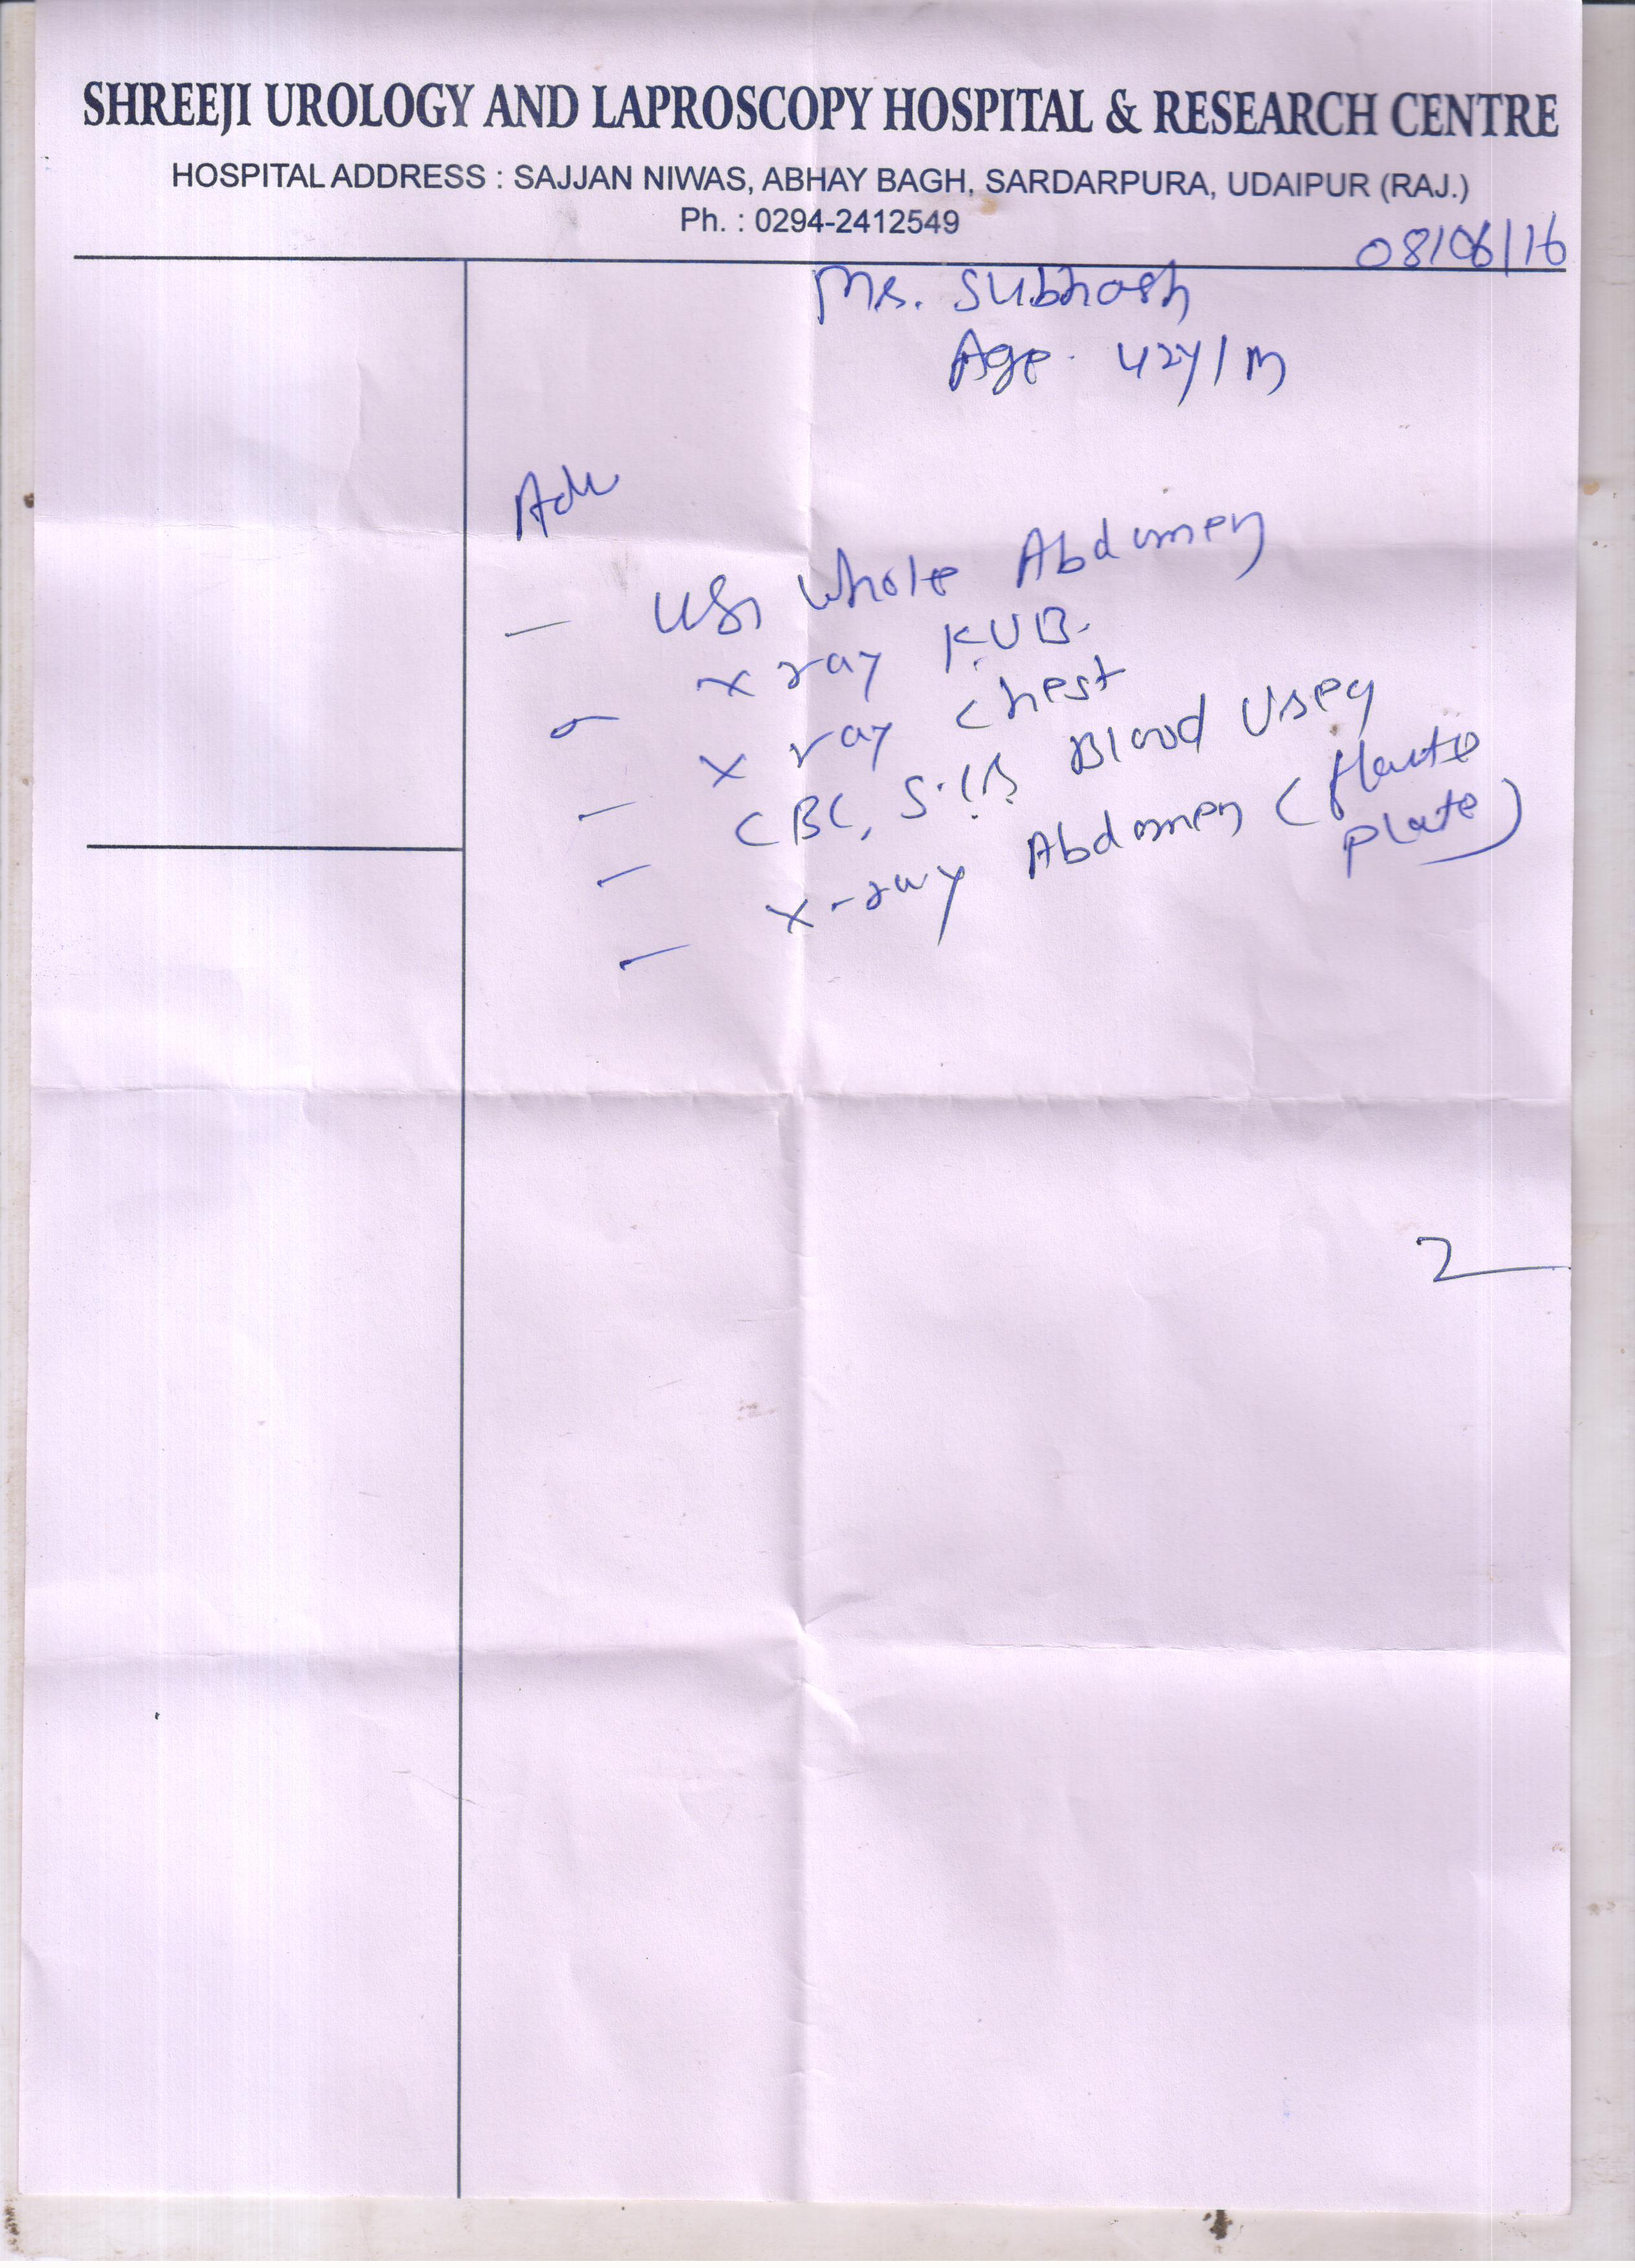 SHREEJI UROLOGY AND LAPROSCOPY HOSPITAL & RESEARCH CENTRE
HOSPITAL ADDRESS : SAJJAN NIWAS, ABHAY BAGH, SARDARPURA, UDAIPUR (RAJ.)
Ph. : 0294-2412549
08/06/16
Mr. Subhash
Age. 42y/M
Adv
- USG Whole Abdomen
- x ray KUB.
- x ray chest
- CBC, Blood Urea
- x-ray Abdomen (
plate)